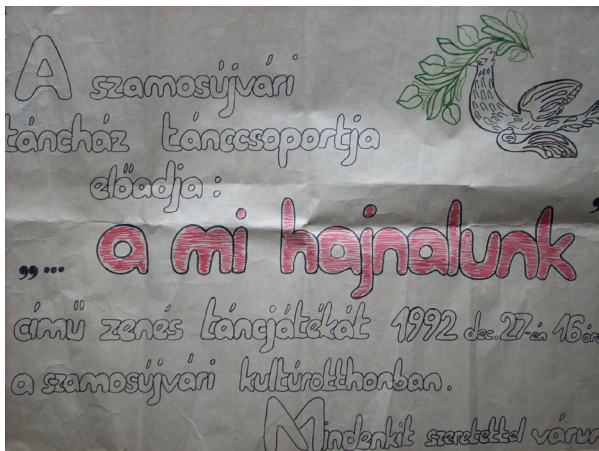 A szamosújvári
táncház tánccsoportja
előadja:
„... a mi hajnalunk"
című zenés táncjátékát 1992 dec.27-én 16 óra
a szamosújvári kultúrotthonban.
Mindenkit szeretettel várun